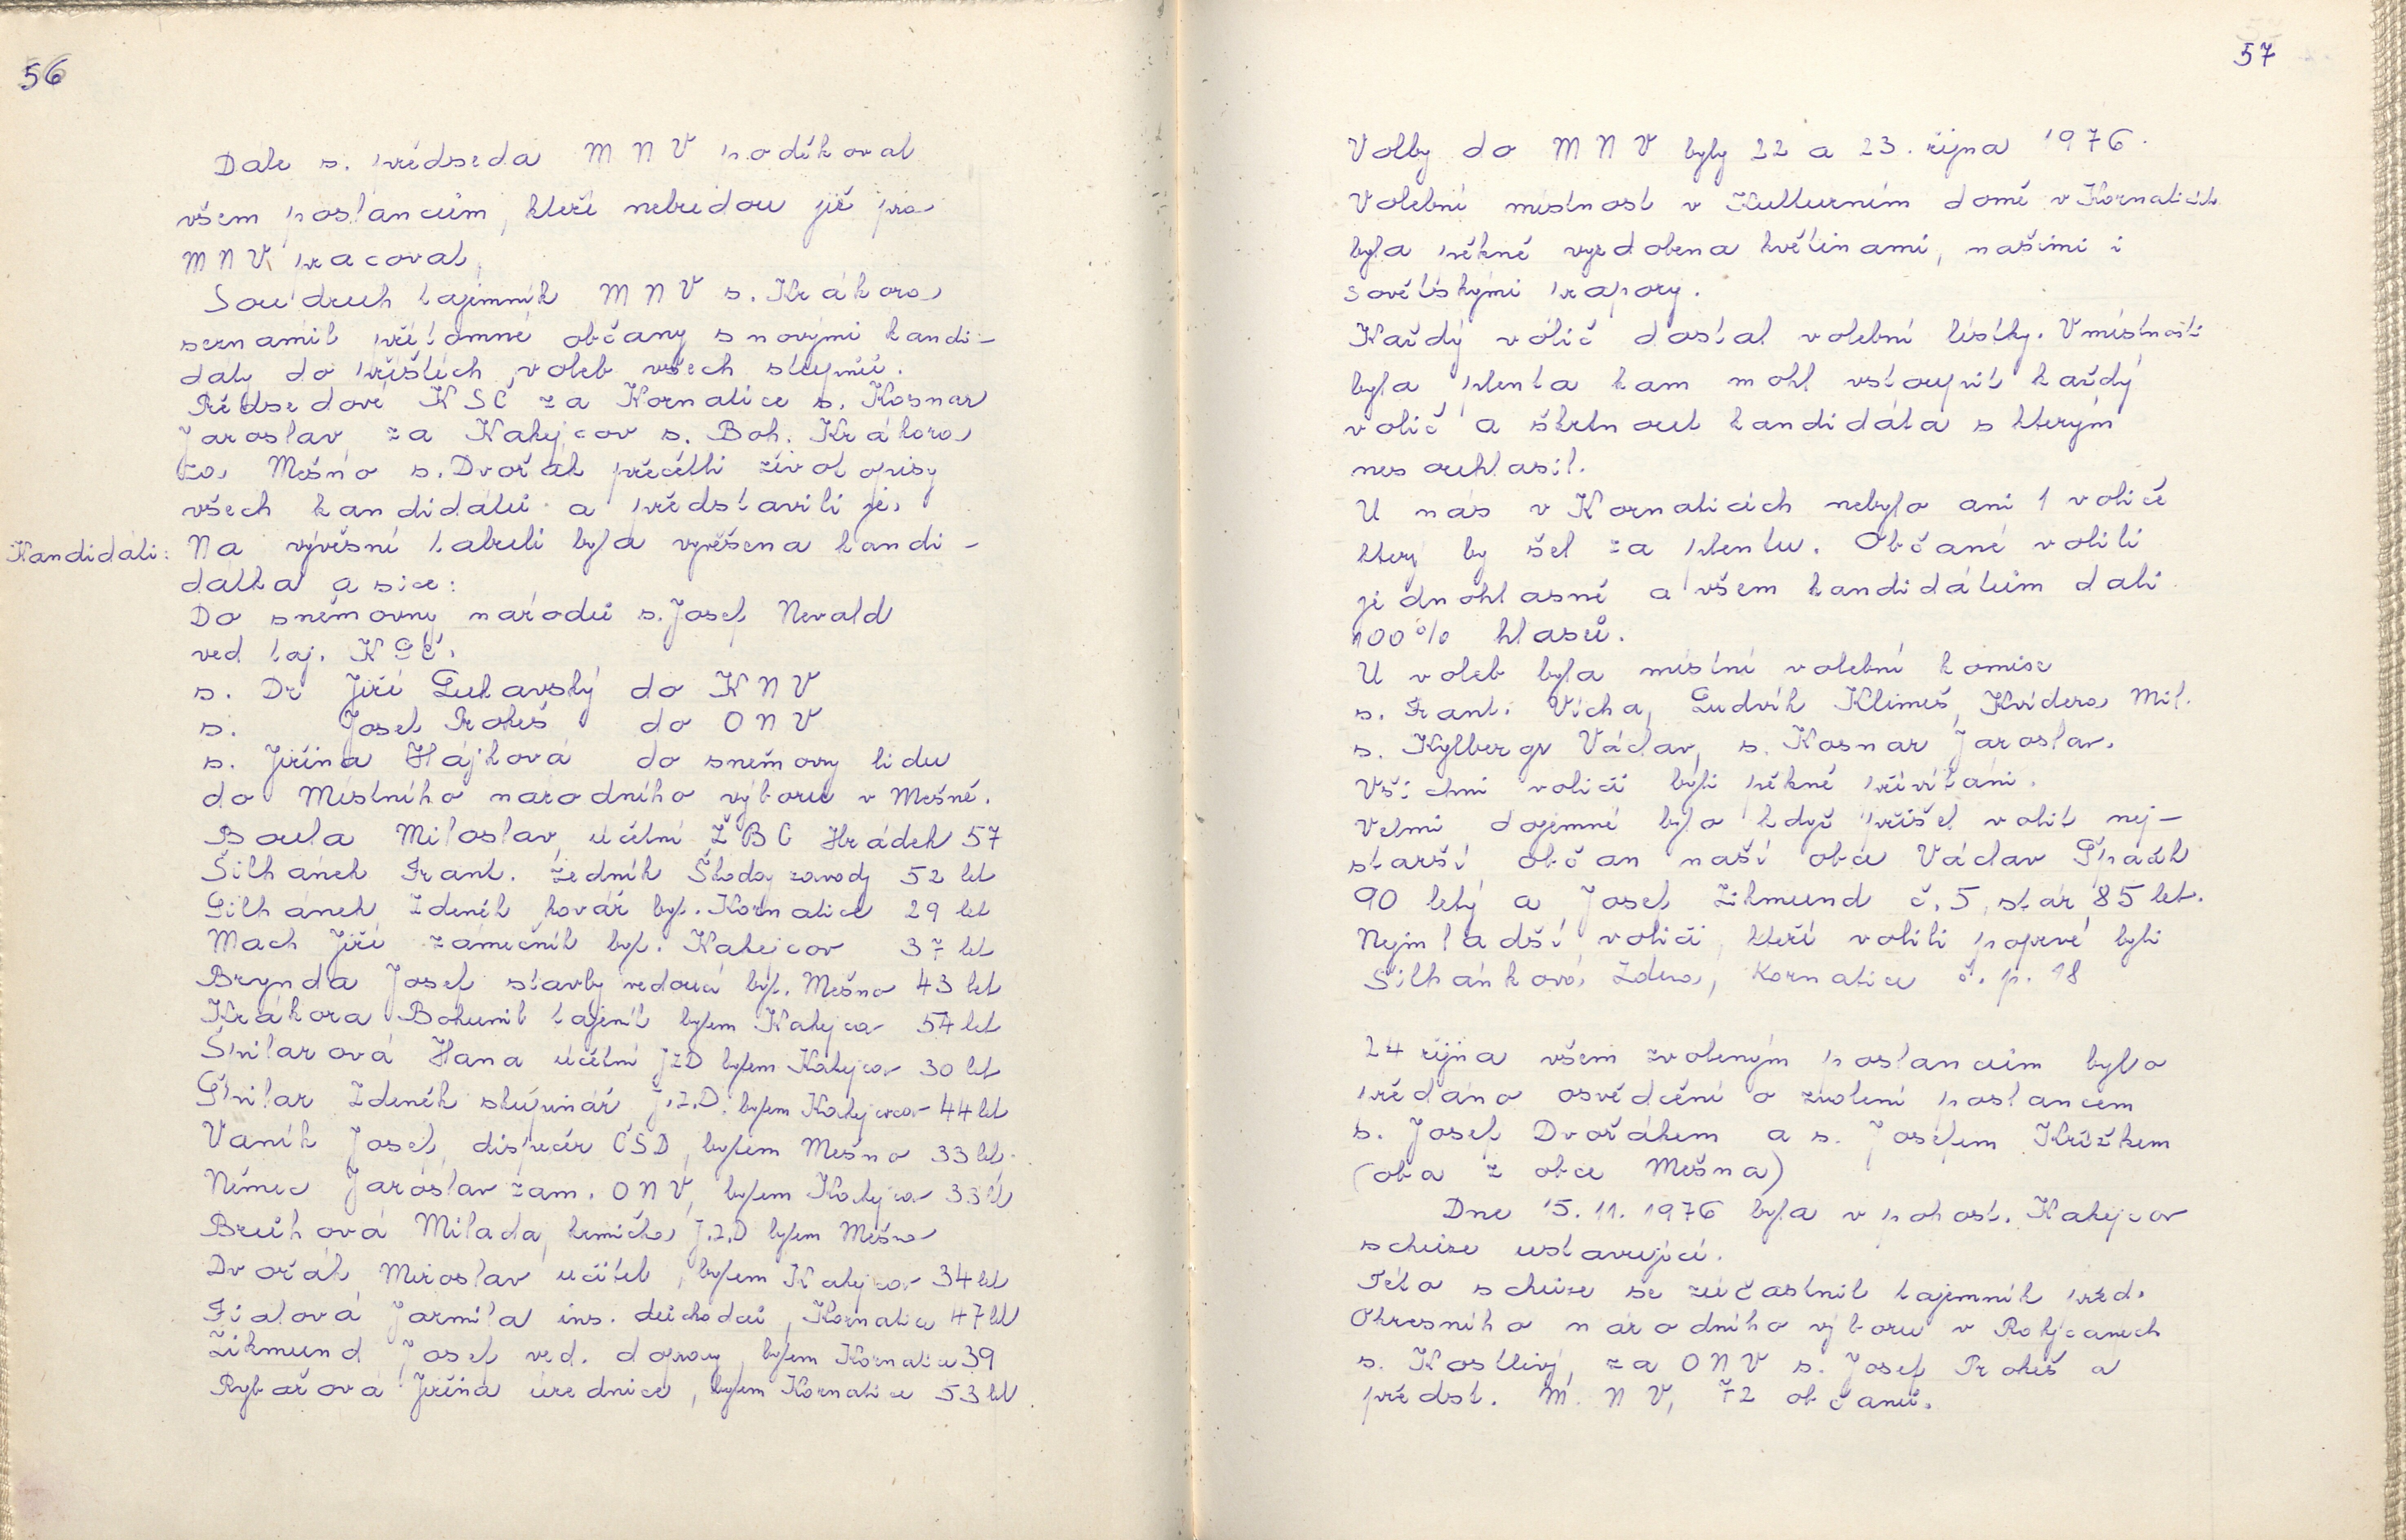 56
Dale s. předseda M N V poděkoval
všem poslancům, kteří nebudou již pro
M N V pracovat.
Soudruh tajemník M N V s. Krákora
seznámil přítomné občany s novými kandi-
dáty do příštích voleb všech stupňů.
Předsedové KSČ za Kornatice s. Kosnar
Jaroslav, za Kakejcov s. Boh. Krákora
za Mešno s. Dvořák přečetli životopisy
všech kandidátů a představili je.
Kandidáti: Na vývěsní tabuli byla vyvěšena kandi-
dátka a sice:
Do sněmovny národů s. Josef Nevald
ved taj. KSČ.
s. Dr Jiří Lukavský do K N V
s. Josef Prokeš do O N V
s. Jiřina Hájková do sněmovny lidu
do Místního národního výboru v Mešně.
Boula Miloslav, účetní ZBC Hrádek 57
Šilhánek Frant. zedník Škodov. zavody 52 let
Šilhánek Zdeněk kovář byt. Kornatice 29 let
Mach Jiří zámečník byt. Kakejcov 37 let
Brynda Josef stavby vedoucí byt. Mešno 43 let
Krákora Bohumil tajemík bytem Kakejcov 54 let
Špilarová Hana účetní JZD bytem Kakejcov 30 let
Špilar Zdeněk skupinář J.Z.D. bytem Kakejcov 44 let
Vaník Josef, dispečér ČSD, bytem Mešno 33 let.
Němec Jaroslav zam. O N V, bytem Kakejcov 33 let
Brůhová Milada, krmička J.Z.D bytem Mešno
Dvořák Miroslav učitel, bytem Kakejcov 34 let
Fialová Jarmila inv. důchodců, Kornatice 47 let
Zikmund Josef ved. dopravy, bytem Kornatice 39
Rybařová Jiřina úřednice, bytem Kornatice 53 let
57
Volby do M N V byly 22 a 23. října 1976.
Volební místnost v Kulturním domě v Kornaticích
byla pěkně vyzdobena květinami, našimi i
sovětskými prapory.
Každý volič dostal volební lístky. V místnosti
byla plenta kam mohl vstoupit každý
volič a škrtnout kandidáta s kterým
nesouhlasil.
U nás v Kornaticích nebylo ani 1 voliče
ktery by šel za plentu. Občané volili
jednohlasně a všem kandidátům dali
100% hlasů.
U voleb byla místní volební komise
s. Frant. Vícha, Ludvík Klimeš, Kvídera Mil.
s. Kylbergr Václav, s. Kosnar Jaroslav.
Všichni voliči byli pěkně přivítáni.
Velmi dojemné bylo když přišel volit nej-
starší občan naší obce Václav Špaček
90 letý a Josef Zikmund č. 5, stár 85 let.
Nejmladší voliči, kteří volili poprvé byli
Šilhánková Zdena, Kornatice č. p. 18
24 října všem zvoleným poslancům bylo
předáno osvědčení o zvolení poslancem
s. Josef Dvořákem a s. Josefem Křížkem
(oba z obce Mešna)
Dne 15. 11. 1976 byla v pohost. Kakejcov
schůze ustavující.
Této schůze se zúčastnil tajemník před.
Okresního národního výboru v Rokycanech
s. Kostlivý, za O N V s. Josef Prokeš a
předst. M. N V, 72 občanů.